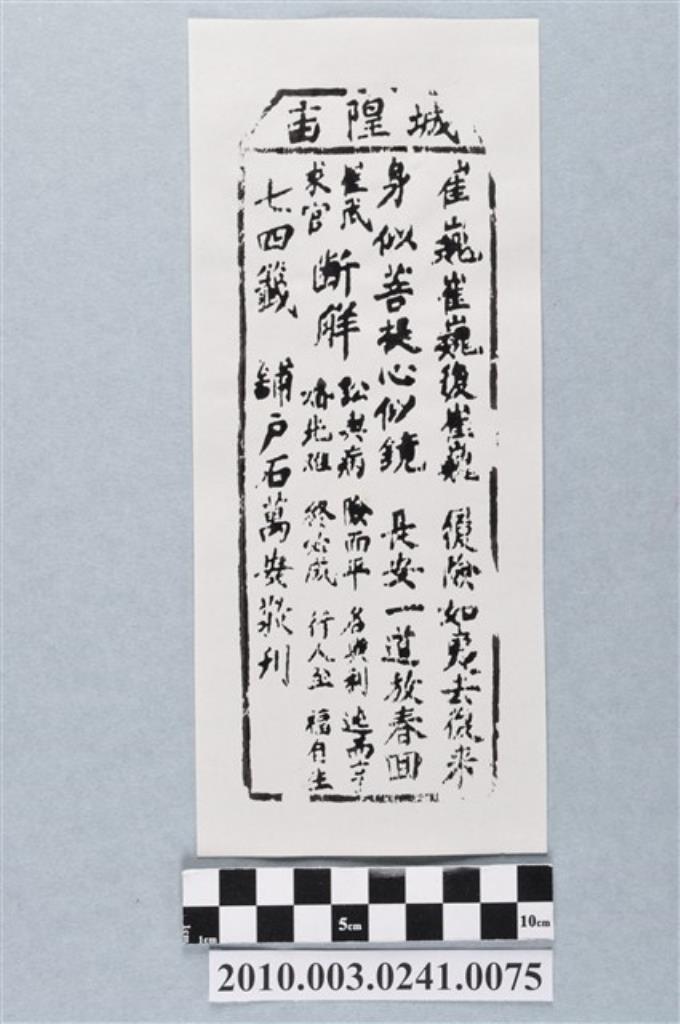 城隍宙
崔巍崔巍復崔巍 履險如夷去復來
身似菩提心似鏡 長安一道放春回
崔武
求官
斷解
訟與病 險而平 名與利 遲而亨
婚 終必成 行人至 福自生
七四籤 鋪戶石萬安敬刊
1cm 5cm 10cm
2010.003.0241.0075